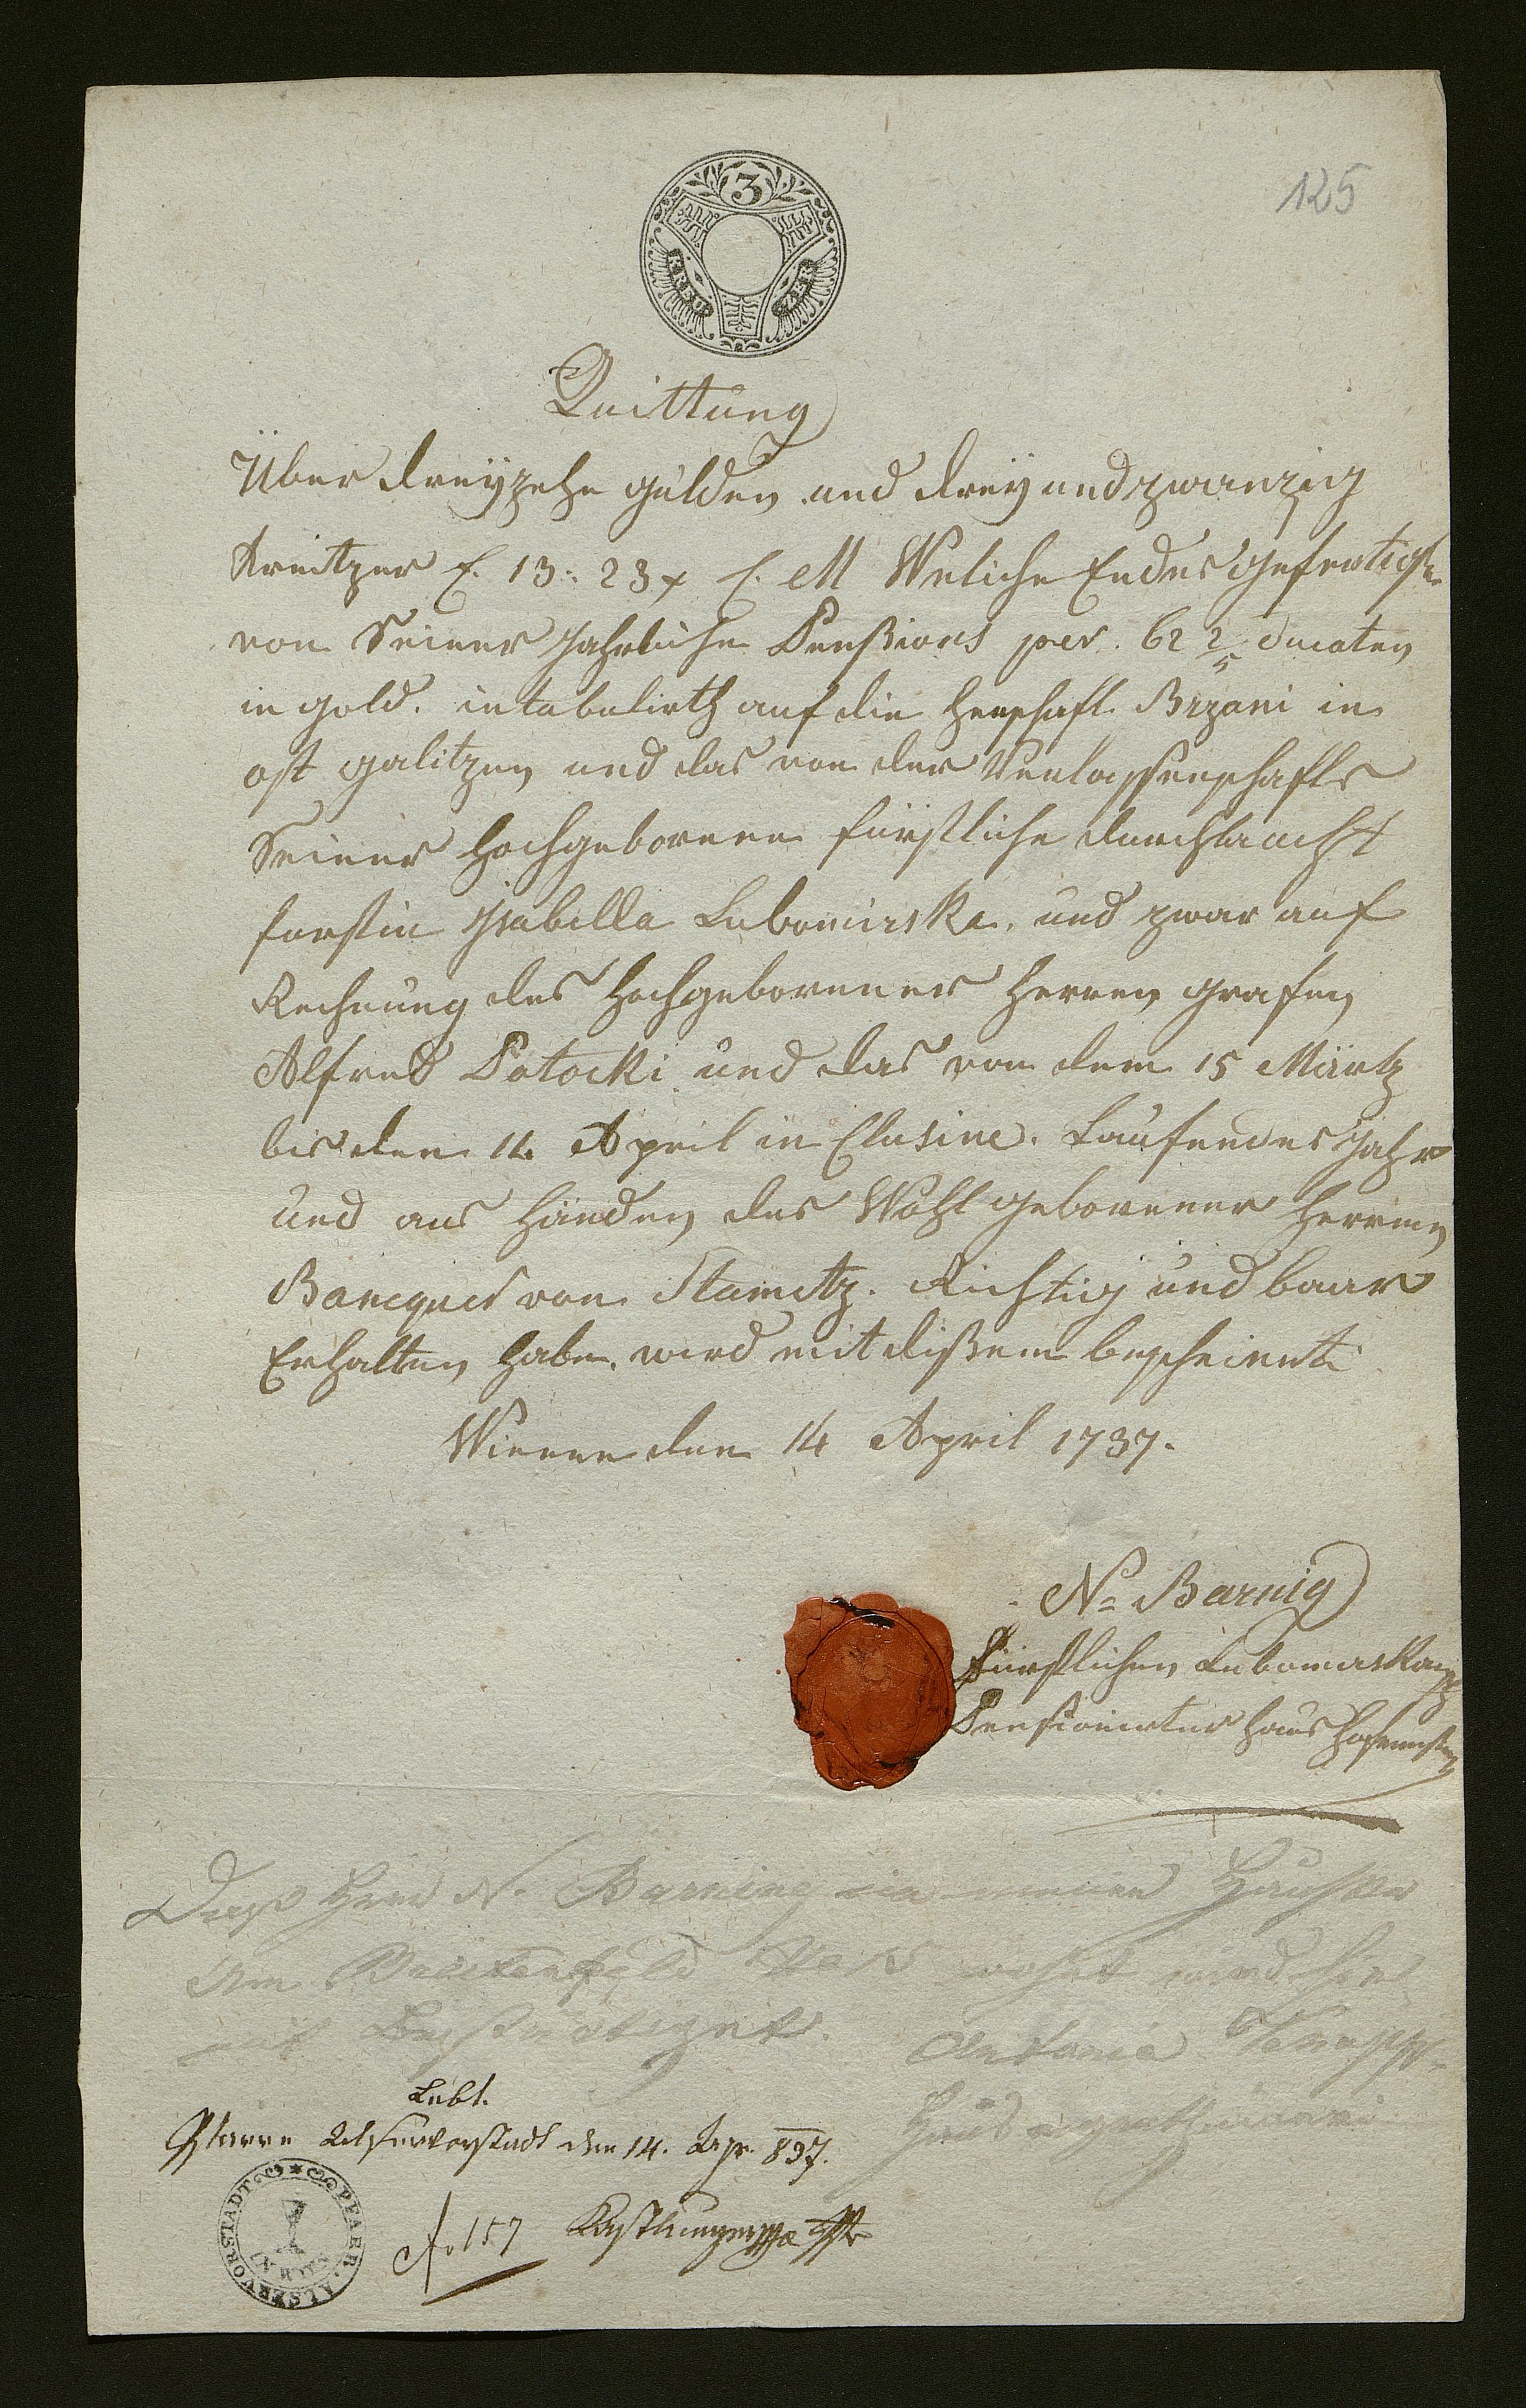 125
3
KREU ZER
Quittung
Über dreyzehn gulden und drey und zwanzig
Kreitzer f. 13: 23 x C. M Weliche Endes gefertigte
von Seiner Jahrliche Penßions per. 62 2/5 ducaten
in gold. intabulirth auf die Herschaft Brzani in
ost galitzen und das von der Verlassenschafts
Seiner Hochgeborenen fürstliche durchlaucht
furstin Isabella Lubomirska. und zwar auf
Rechnung des Hochgeborener Herren grafen
Alfred Potocki und das von dem 15 Märtz
bis den 14 April in Clusive. Laufendes Jahr
und aus Händen des Wohl geborener Herren
Bancques von Stametz. Richtig und baar
Erhalten habe. wird mit dißem bescheinnt
Wienn den 14 April 1737.
N= Barnig
fürstlichen Lubomirska
Pensionirter Haus Hofmeister
Dass Herr N. Barning in meinen Hauße
Am Breitenfeld wohnt wird hie
mit Bestaetiget. Antonia
Lebt.
Pfarre Alservorstadt den 14. Apr. 837.
PFARR. ALSERVORSTADT
IN WIEN
No 157